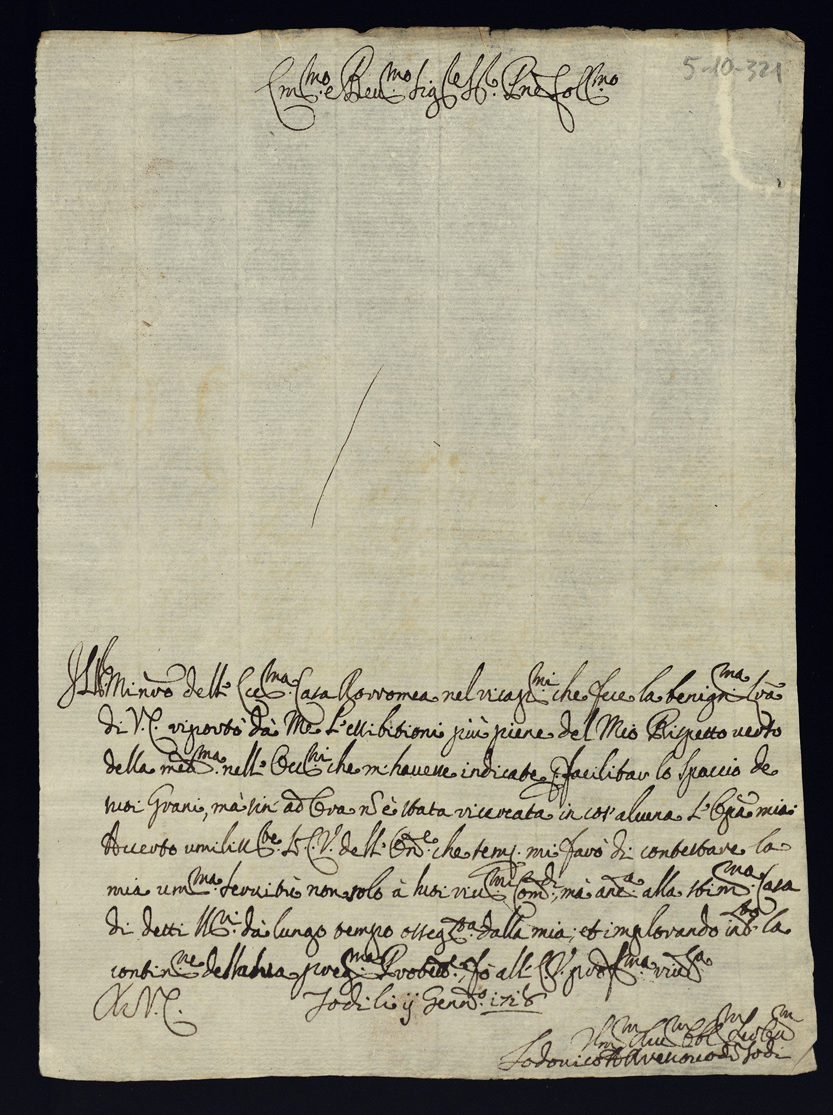 5-10-321
Em.mo e Rev.mo Sig.re Sig.re P.ne Coll.mo
Il Minro dell' Ecc.ma Casa Borromea nel ricapi.mi che fece la benign.ma l'ra
di V.E. riportò dà Me l'essibitioni più piene del Mio Rispetto verso
della med.ma nell' che m'havesse indicate facilitar lo Spaccio de
suoi Grani, mà sin' ad Ora n̄ è stata ricercata in cos' alcuna l'Op̄a mia.
Accerto umiliss.te L'E.V. dell' che temp. mi farò di contestare la
mia um.ma servitù non solo à suoi riv.mi Com.di, mà anc.a alla stim.ma Casa
di detti SS.ri dà lungo tempo osseq.ta dalla mia, et implorando la
contin.ne della sua preg.ma fò all' E.V. prof.ma riv.za
D.V.E. Lodi li ij Genn.o 1718
Um.mo Div.mo Obl.mo Ser.
Lodovico Vescovo di Lodi